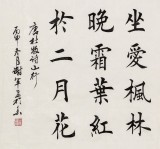 坐愛楓林
晚霜葉紅
於二月花
唐杜牧詩山行
丙申冬月